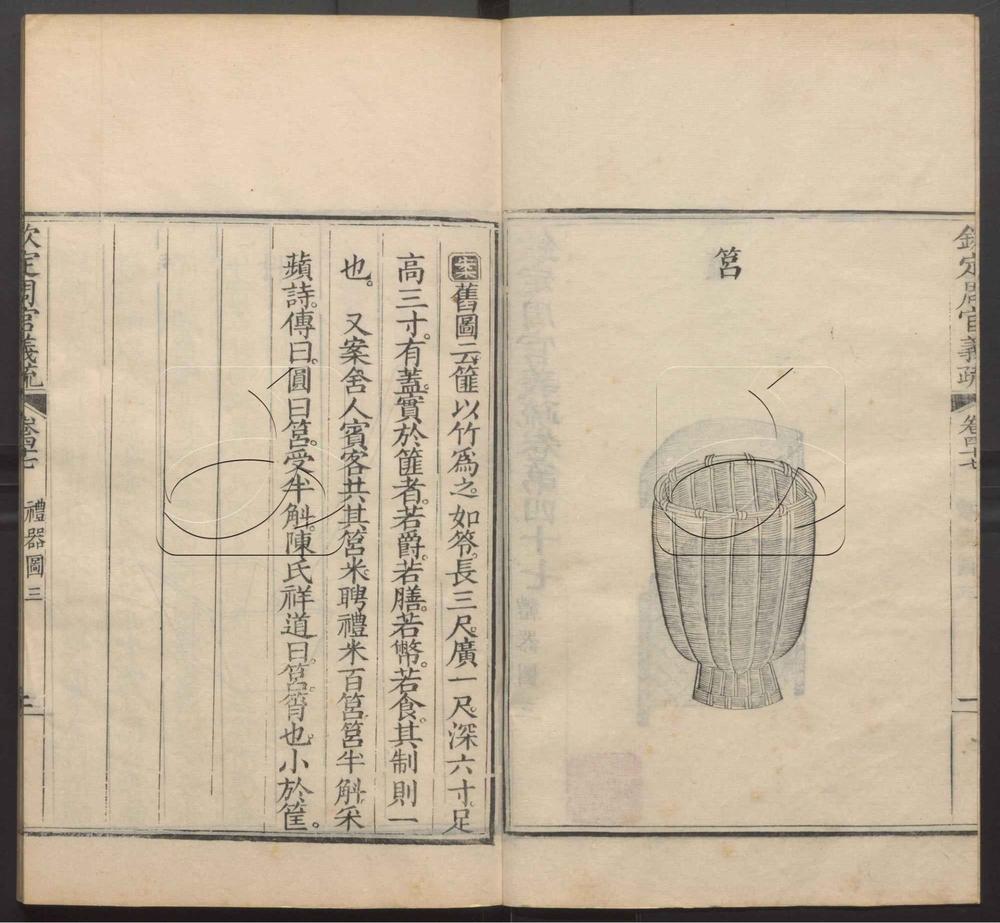 欽定周官義疏 卷四十七 一
筥
案舊圖云篚以竹爲之如笭長三尺廣一尺深六寸足
高三寸有蓋實於篚者若爵若膳若幣若食其制則一
也。 又案舍人賓客共其筥米聘禮米百筥筥半斛采
蘋詩傳曰圓曰筥受半斛陳氏祥道曰筥筲也小於筐。
欽定周官義疏 卷四十七 禮器圖三 二